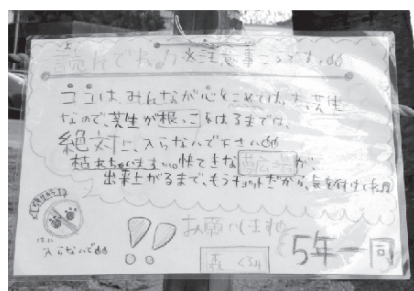 読んでね♪ ※注意事こうです。
ココは、みんなが心をこめてはった芝生
なので、芝生が根っこをはるまでは、
絶対に、入らないで下さい
枯れちゃいます。。。快てきな 広場 が
出来上がるまで、もうチョットだから、気を付けて
入らないで
お願いします
5年一同